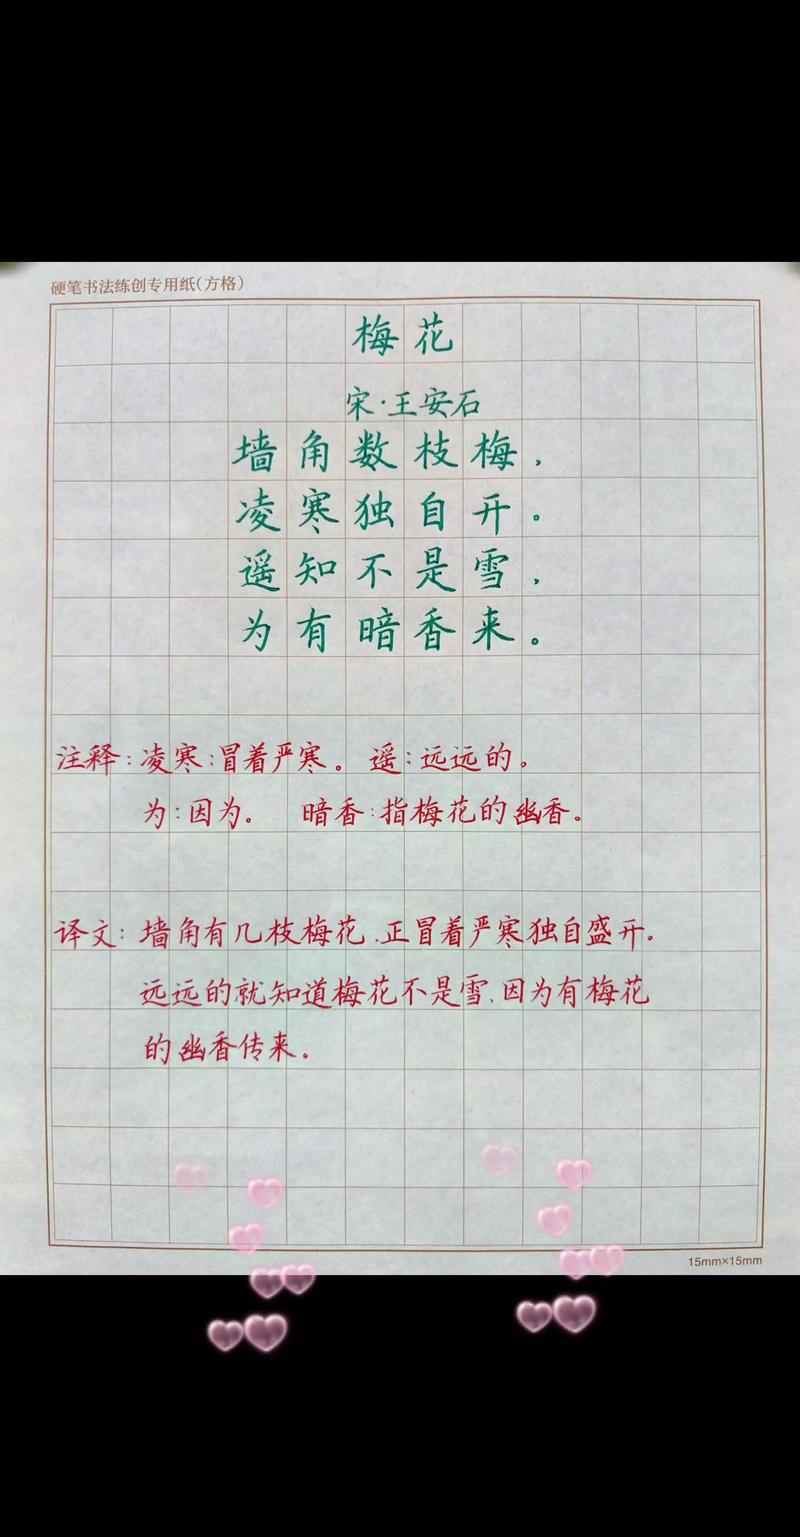 硬笔书法练创专用纸(方格)
梅花
宋·王安石
墙角数枝梅，
凌寒独自开。
遥知不是雪，
为有暗香来。
注释：凌寒：冒着严寒。 遥：远远的。
为：因为。 暗香：指梅花的幽香。
译文：墙角有几枝梅花，正冒着严寒独自盛开。
远远的就知道梅花不是雪，因为有梅花
的幽香传来。
15mm×15mm